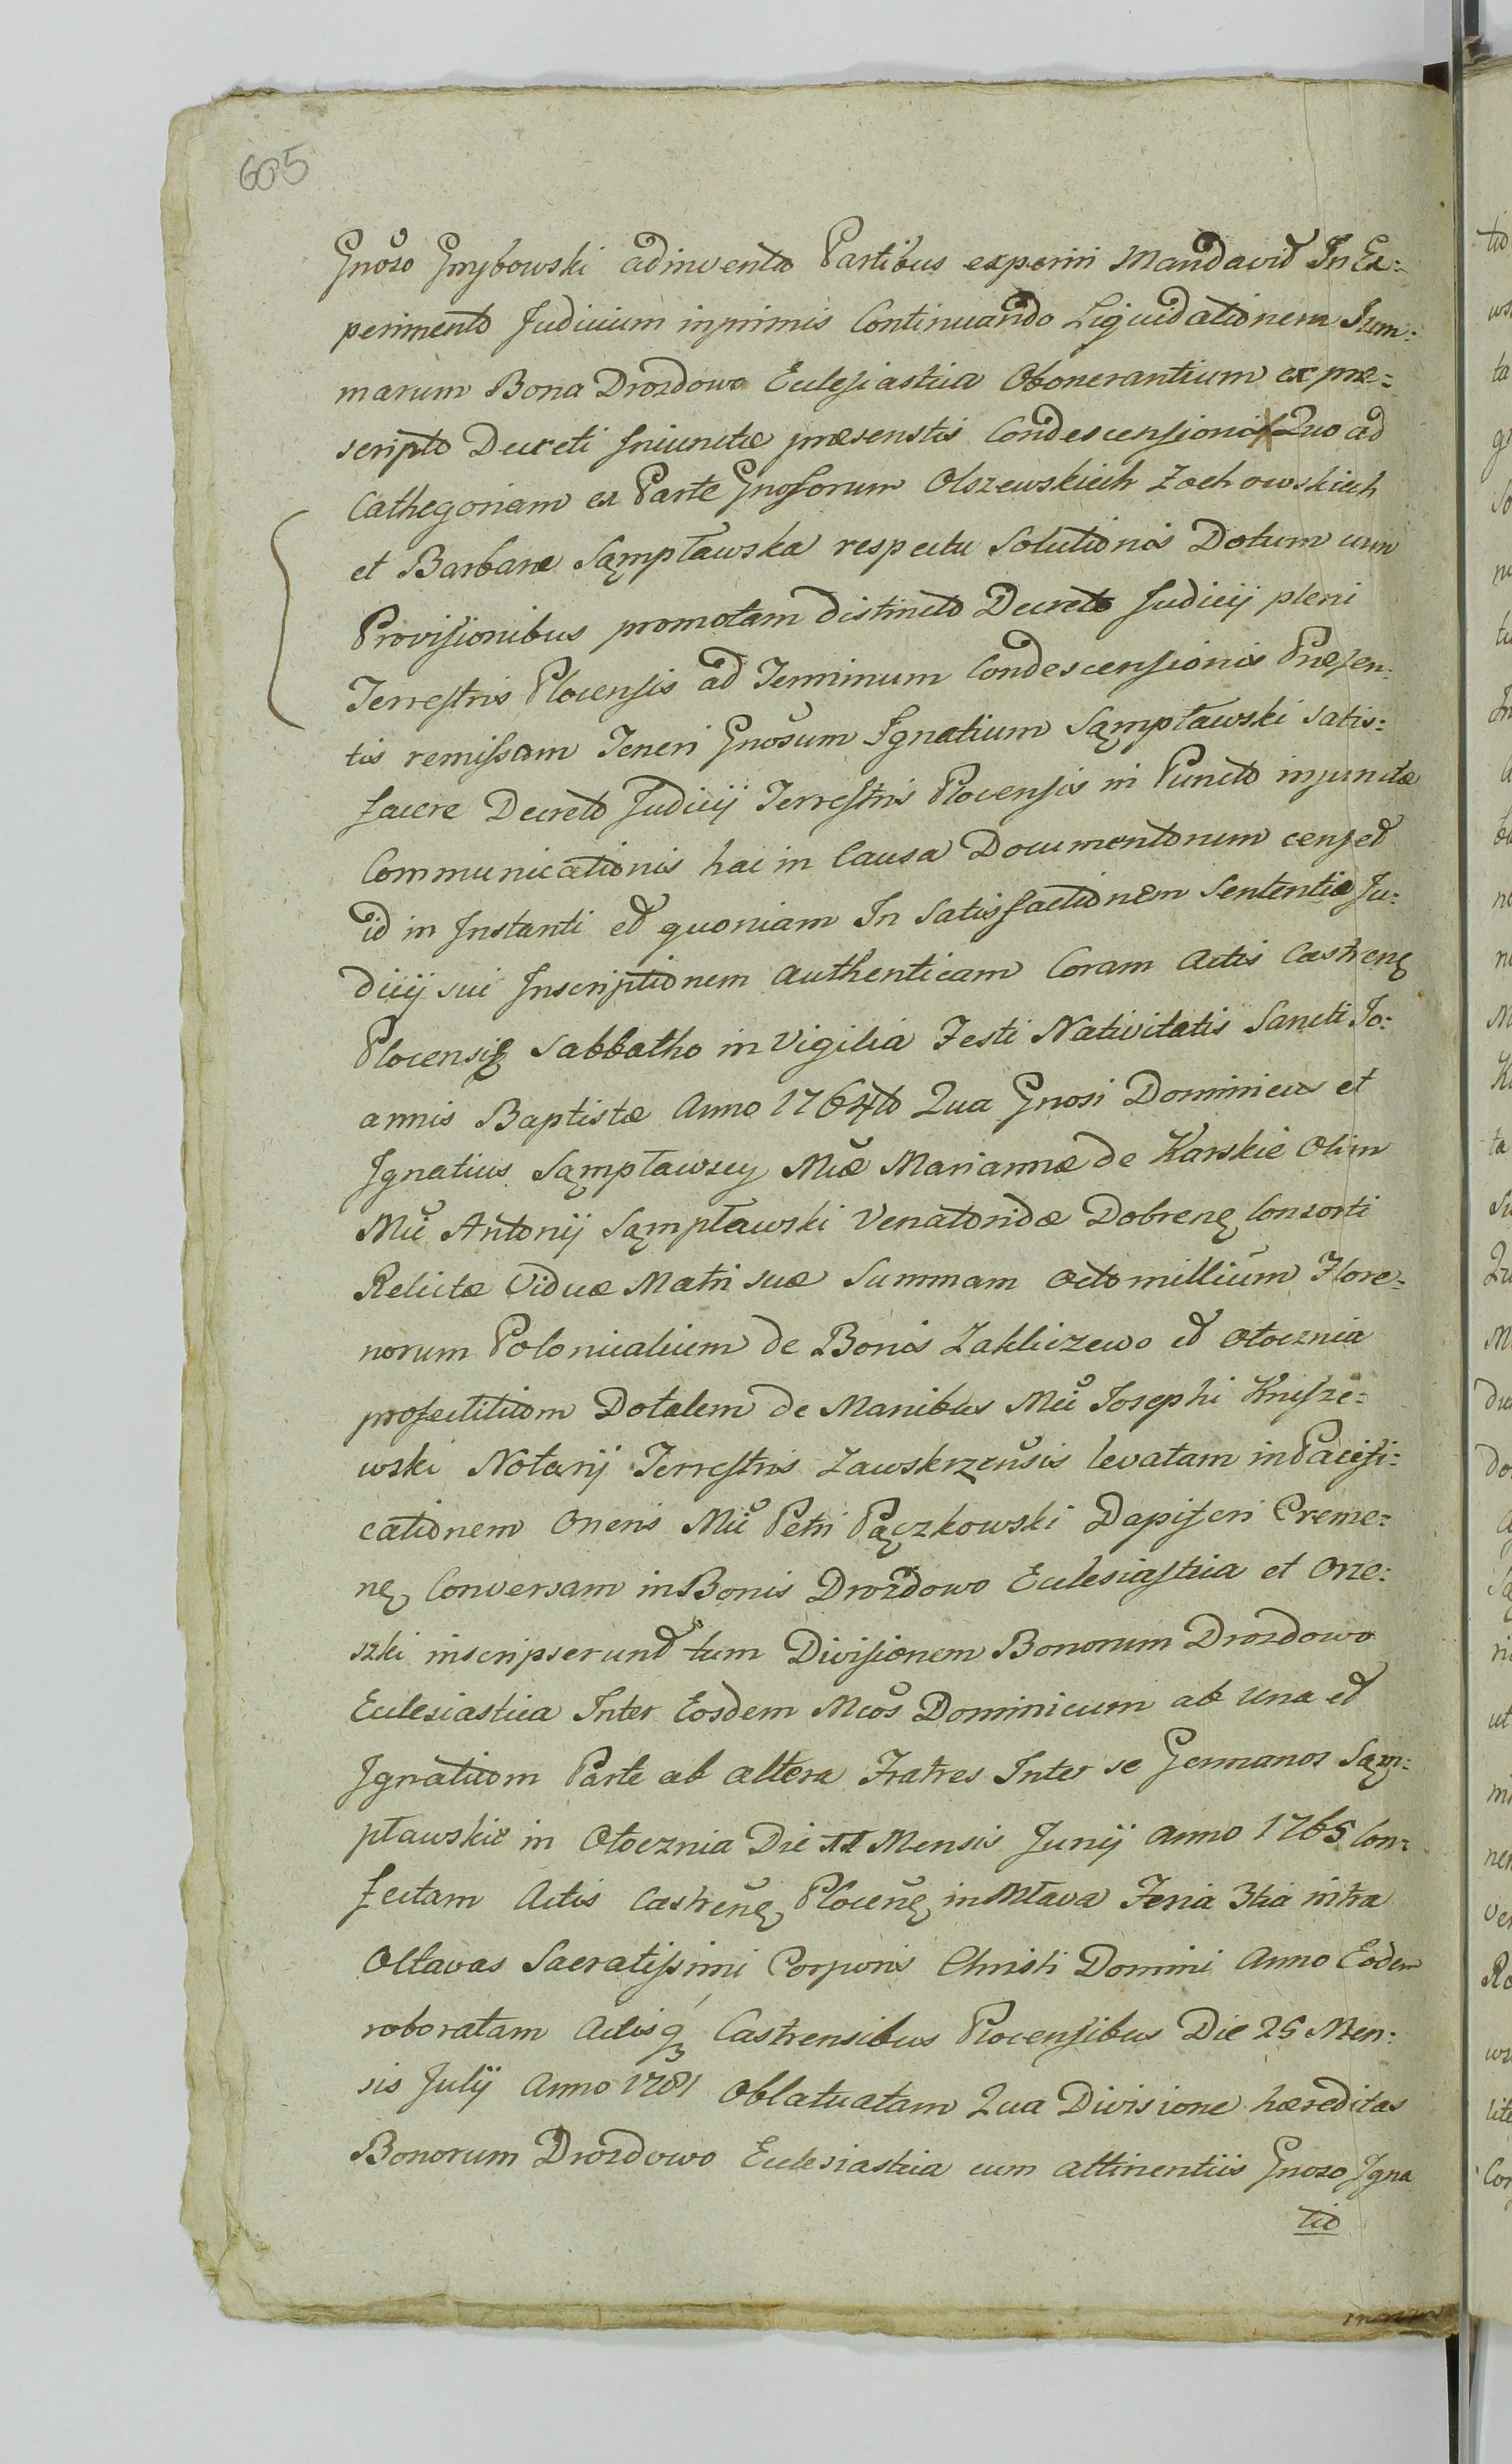 605
Gnoso Grzybowski adinvento Partibus experiri Mandavit In Ex:
perimento Judicium inprimis Continuando Liquidationem Sum:
marum Bona Drozdowo Ecclesiastica Obonerantium ex præ:
scripto Decreti Iniunctæ præsenstis Condescensionis Quo ad
Cathegoriam ex Parte Gnosorum Olszewskich Zochowskich
et Barbaræ Sąmpławska respectu Solutionis Dotum cum
Provisionibus promotam distincto Decreto Judicij pleni
Terrestris Plocensis ad Terminum Condescensionis Præsen:
tis remissam Teneri Gnosum Ignatium Sąmpławski satis:
facere Decreto Judicij Terrestris Plocensis in Puncto injunctæ
Communicationis hac in Causa Documentorum censet
id in Instanti et quoniam In Satisfactionem Sententiæ Ju:
dicij sui Inscriptionem authenticam Coram Actis Castreng
Plocensi Sabbatho in Vigilia Festi Nativitatis Sancti Jo:
annis Baptistæ Anno 1764to Qua Gnosi Dominicus et
Ignatius Sąmpławscy Mcæ Mariannæ de Karskie Olim
Mci Antonij Sąmpławski Venatoridæ Dobrenę Consorti
Relictæ Viduæ Matri suæ Summam octo millium Flore:
norum Polonicalium de Bonis Zakliczewo et Otocznia
profectitiam Dotalem de Manibus Mci Josephi Knisze:
wski Notarij Terrestris Zawskrzensis levatam in Pacifi:
cationem Oneris Mci Petri Pączkowski Dapiferi Creme:
nę Conversam in Bonis Drozdowo Ecclesiastica et Orze:
szki inscripserunt tum Divisionem Bonorum Drozdowo
Ecclesiastica Inter Eosdem Mcos Dominicum ab una et
Ignatium Parte ab altera Fratres Inter se Germanos Sąm:
pławskie in Otocznia Die 11 Mensis Junij Anno 1765 Con:
fectam Actis Castrenę Plocenę in Mława Feria 3tia intra
Octavas Sacratissimi Corporis Christi Domini Anno Eodem
roboratam Actisq Castrensibus Plocensibus Die 25 Men:
sis Julij Anno 1781 Oblatuatam Qua Divisione hæreditas
Bonorum Drozdowo Ecclesiastica cum attinentiis Gnoso Igna
tio